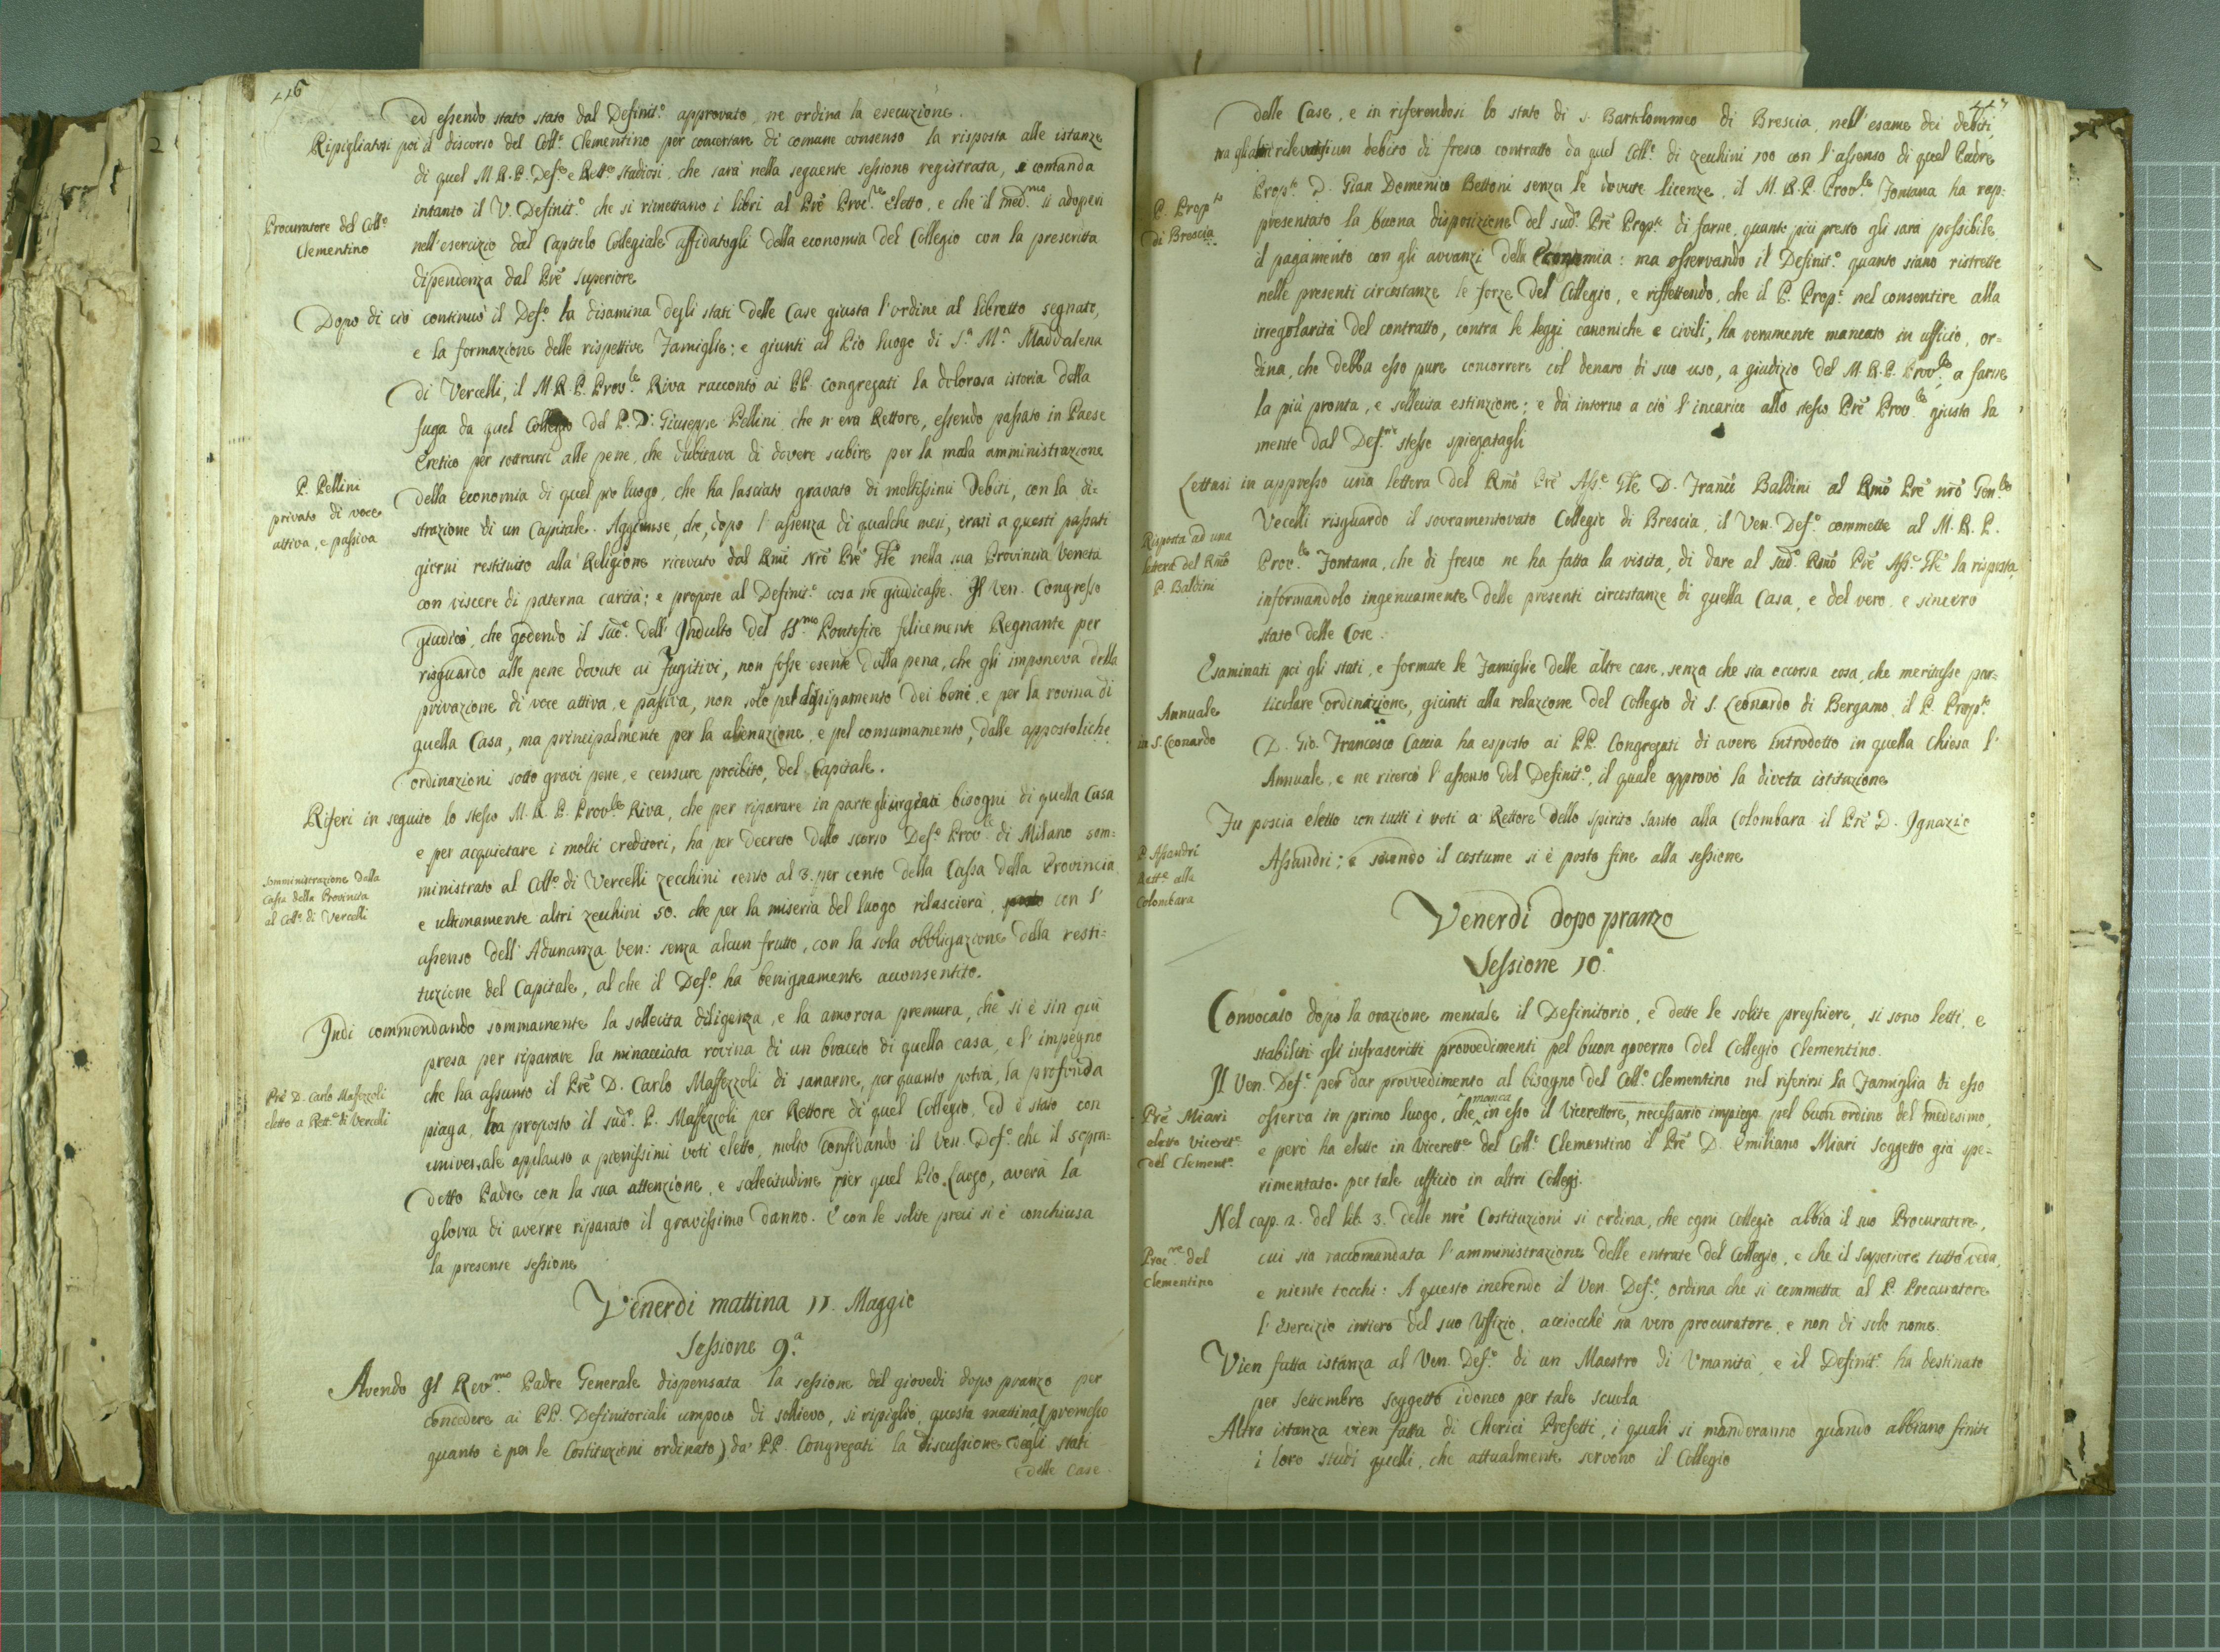 116
ed essendo stato stato dal Definit.º approvato ne ordina la esecuzione.
Ripigliatosi poi il discorso del Coll.º Clementino per concertare di comune consenso la risposta alle istanze
di quel M. R. P. Def.e e Rett.e Studiosi, che sarà nella seguente sessione registrata, e comanda
Procuratore del Coll.º
Clementino
intanto il V. Definit.º che si rimettano i libri al Prē Proc.re eletto, e che il med.mo si adoperi
nell'esercizio dal Capitolo Collegiale affidatogli della economia del Collegio con la prescritta
dipendenza dal Prē Superiore
Dopo di ciò continuò il Def.º la disamina degli stati delle Case giusta l'ordine al libretto segnato,
e la formazione delle rispettive Famiglie; e giunti al Pio luogo di S.ª M.ª Maddalena
di Vercelli, il M. R. P. Prov.le Riva raccontò ai PP. Congregati la dolorosa istoria della
fuga da quel Collegio del P. D. Giuseppe Pellini che n'era Rettore, essendo passato in Paese
Eretico per sottrarsi alle pene, che dubitava di dovere subire per la mala amministrazione
P. Pellini
privato di voce
attiva, e passiva
della economia di quel pio luogo, che ha lasciato gravato di moltissimi Debiti, con la di=
strazione di un Capitale. Aggiunse, che, dopo l'assenza di qualche mesi, erasi a questi passati
giorni restituito alla Religione ricevuto dal Rmō Nrō Prē Gle nella sua Provincia Veneta
con viscere di paterna carità; e propose al Definit.º cosa ne giudicasse. Il Ven. Congresso
giudicò, che godendo il sud.º dell'Indulto del SS.mo Pontefice felicemente Regnante per
risguardo alle pene dovute ai fugitivi, non fosse esente dalla pena, che gli imponeva della
privazione di voce attiva, e passiva, non solo pel dissipamento dei beni, e per la rovina di
quella Casa, ma principalmente per la alienazione, e pel consumamento, dalle appostoliche
ordinazioni sotto gravi pene, e censure proibito, del Capitale.
Riferì in seguito lo stesso M. R. P. Prov.le Riva, che per riparare in parte gli urgenti bisogni di quella Casa
e per acquietare i molti creditori, ha per decreto dello scorso Def.º Prov.le di Milano som=
Somministrazione dalla
Cassa della Provincia
al Coll.º di Vercelli
ministrato al Coll.º di Vercelli zecchini cento al 3. per cento della Cassa della Provincia
e ultimamente altri zecchini 50. che per la miseria del luogo rilascierà, con l'
assenso dell'Adunanza Ven: senza alcun frutto, con la sola obbligazione della resti=
tuzione del Capitale, al che il Def.º ha benignamente acconsentito.
Indi commendando sommamente la sollecita diligenza, e la amorosa premura, che si è sin qui
presa per riparare la minacciata rovina di un braccio di quella casa, e l'impegno
Prē D. Carlo Massezzoli
eletto a Rett.e di Vercelli
che ha assunto il Prē D. Carlo Massezzoli di sanarne, per quanto potrà, la profonda
piaga, ha proposto il sud.º P. Massezzoli per Rettore di quel Collegio, ed è stato con
universale applauso a pienissimi voti eletto, molto confidando il Ven. Def.º che il sopra=
detto Padre con la sua attenzione, e sollecitudine pier quel Pio Luogo, averà la
gloria di averne riparato il gravissimo danno. E con le solite preci si è conchiusa
la presente sessione
Venerdì mattina 11. Maggio
Sessione 9.ª
Avendo Il Rev.mo Padre Generale dispensata la sessione del giovedì dopo pranzo per
concedere ai PP. Definitoriali umpoco di sollievo, si ripigliò questa mattina (premesso
quanto è per le Costituzioni ordinato) da' PP. Congregati la discussione degli stati
delle Case
117
delle Case, e in riferendosi lo stato di S. Bartolommeo di Brescia, nell'esame dei debiti,
tra gli altri rilevatosi un debito di fresco contratto da quel Coll.º di zecchini 100 con l'assenso di quel Padre
P. Prop.to
di Brescia
Prop.to D. Gian Domenico Bettoni senza le dovute licenze, il M. R. P. Prov.le Fontana ha rap:
presentato la buona disposizione del sud.º Prē Prop.to di farne, quanto più presto gli sarà possibile,
il pagamento con gli avvanzi della Economia: ma osservando il Definit.º quanto siano ristrette
nelle presenti circostanze le forze del Collegio, e riflettendo, che il P. Prop.º nel consentire alla
irregolarità del contratto, contra le leggi canoniche e civili, ha veramente mancato in ufficio, or=
dina, che debba esso pure concorrere col denaro di suo uso, a giudizio del M. R. P. Prov.le, a farne
la più pronta, e sollecita estinzione; e dà intorno a ciò l'incarico allo stesso Prē Prov.le giusta la
mente dal Def.º stesso spiegatagli
Lettasi in appresso una lettera del Rmō Prē Ass.e Gle D. Franc.º Baldini al Rmō Prē nrō Gen.le
Risposta ad una
lettera del Rmō
P. Baldini
Vecelli risguardo il sovramentovato Collegio di Brescia, il Ven. Def.º commette al M. R. P.
Prov.le Fontana, che di fresco ne ha fatta la visita, di dare al sud.º Rmō Prē Ass.e Gle la risposta,
informandolo ingenuamente delle presenti circostanze di quella Casa, e del vero, e sincero
stato delle Cose.
Esaminati poi gli stati, e formate le Famiglie delle altre case, senza che sia occorsa cosa, che meritasse par=
Annuale
in S. Leonardo
ticolare ordinazione, giunti alla relazione del Collegio di S. Leonardo di Bergamo, il P. Prop.to
D. Gio. Francesco Caccia ha esposto ai PP. Congregati di avere introdotto in quella Chiesa l'
Annuale, e ne ricercò l'assenso del Definit.º, il quale approvò la divota istituzione
Fu poscia eletto con tutti i voti a Rettore dello Spirito Santo alla Colombara il Prē D. Ignazio
P. Assandri
Rett.e alla
Colombara
Assandri; e secondo il costume si è posto fine alla sessione
Venerdì dopo pranzo
Sessione 10.ª
Convocato dopo la orazione mentale il Definitorio, e dette le solite preghiere, si sono letti, e
stabiliti gli infrascritti provvedimenti pel buon governo del Collegio Clementino.
Il Ven. Def.º per dar provvedimento al bisogno del Coll.º Clementino nel riferirsi la Famiglia di esso
Prē Miari
eletto Viceret.e
del Clement.º
osserva in primo luogo, che manca in esso il Vicerettore, necessario impiego pel buon ordine del medesimo,
e però ha eletto in Vicerett.e del Coll.º Clementino il Prē D. Emiliano Miari soggetto già spe=
rimentato per tale ufficio in altri Collegj.
Nel cap. 2. del lib. 3. delle nrē Costituzioni si ordina, che ogni Collegio abbia il suo Procuratore,
Proc.re del
Clementino
cui sia raccomandata l'amministrazione delle entrate del Collegio, e che il Superiore tutto veda,
e niente tocchi: A questo inerendo il Ven. Def.º, ordina che si commetta al P. Procuratore
l'Esercizio intiero del suo Uffizio, acciocchè sia vero procuratore, e non di solo nome.
Vien fatta istanza al Ven. Def.º di un Maestro di Umanità, e il Definit.º ha destinato
per settembre soggetto idoneo per tale scuola
Altra istanza vien fatta di Cherici Prefetti, i quali si manderanno quando abbiano finiti
i loro studj quelli, che attualmente servono il Collegio